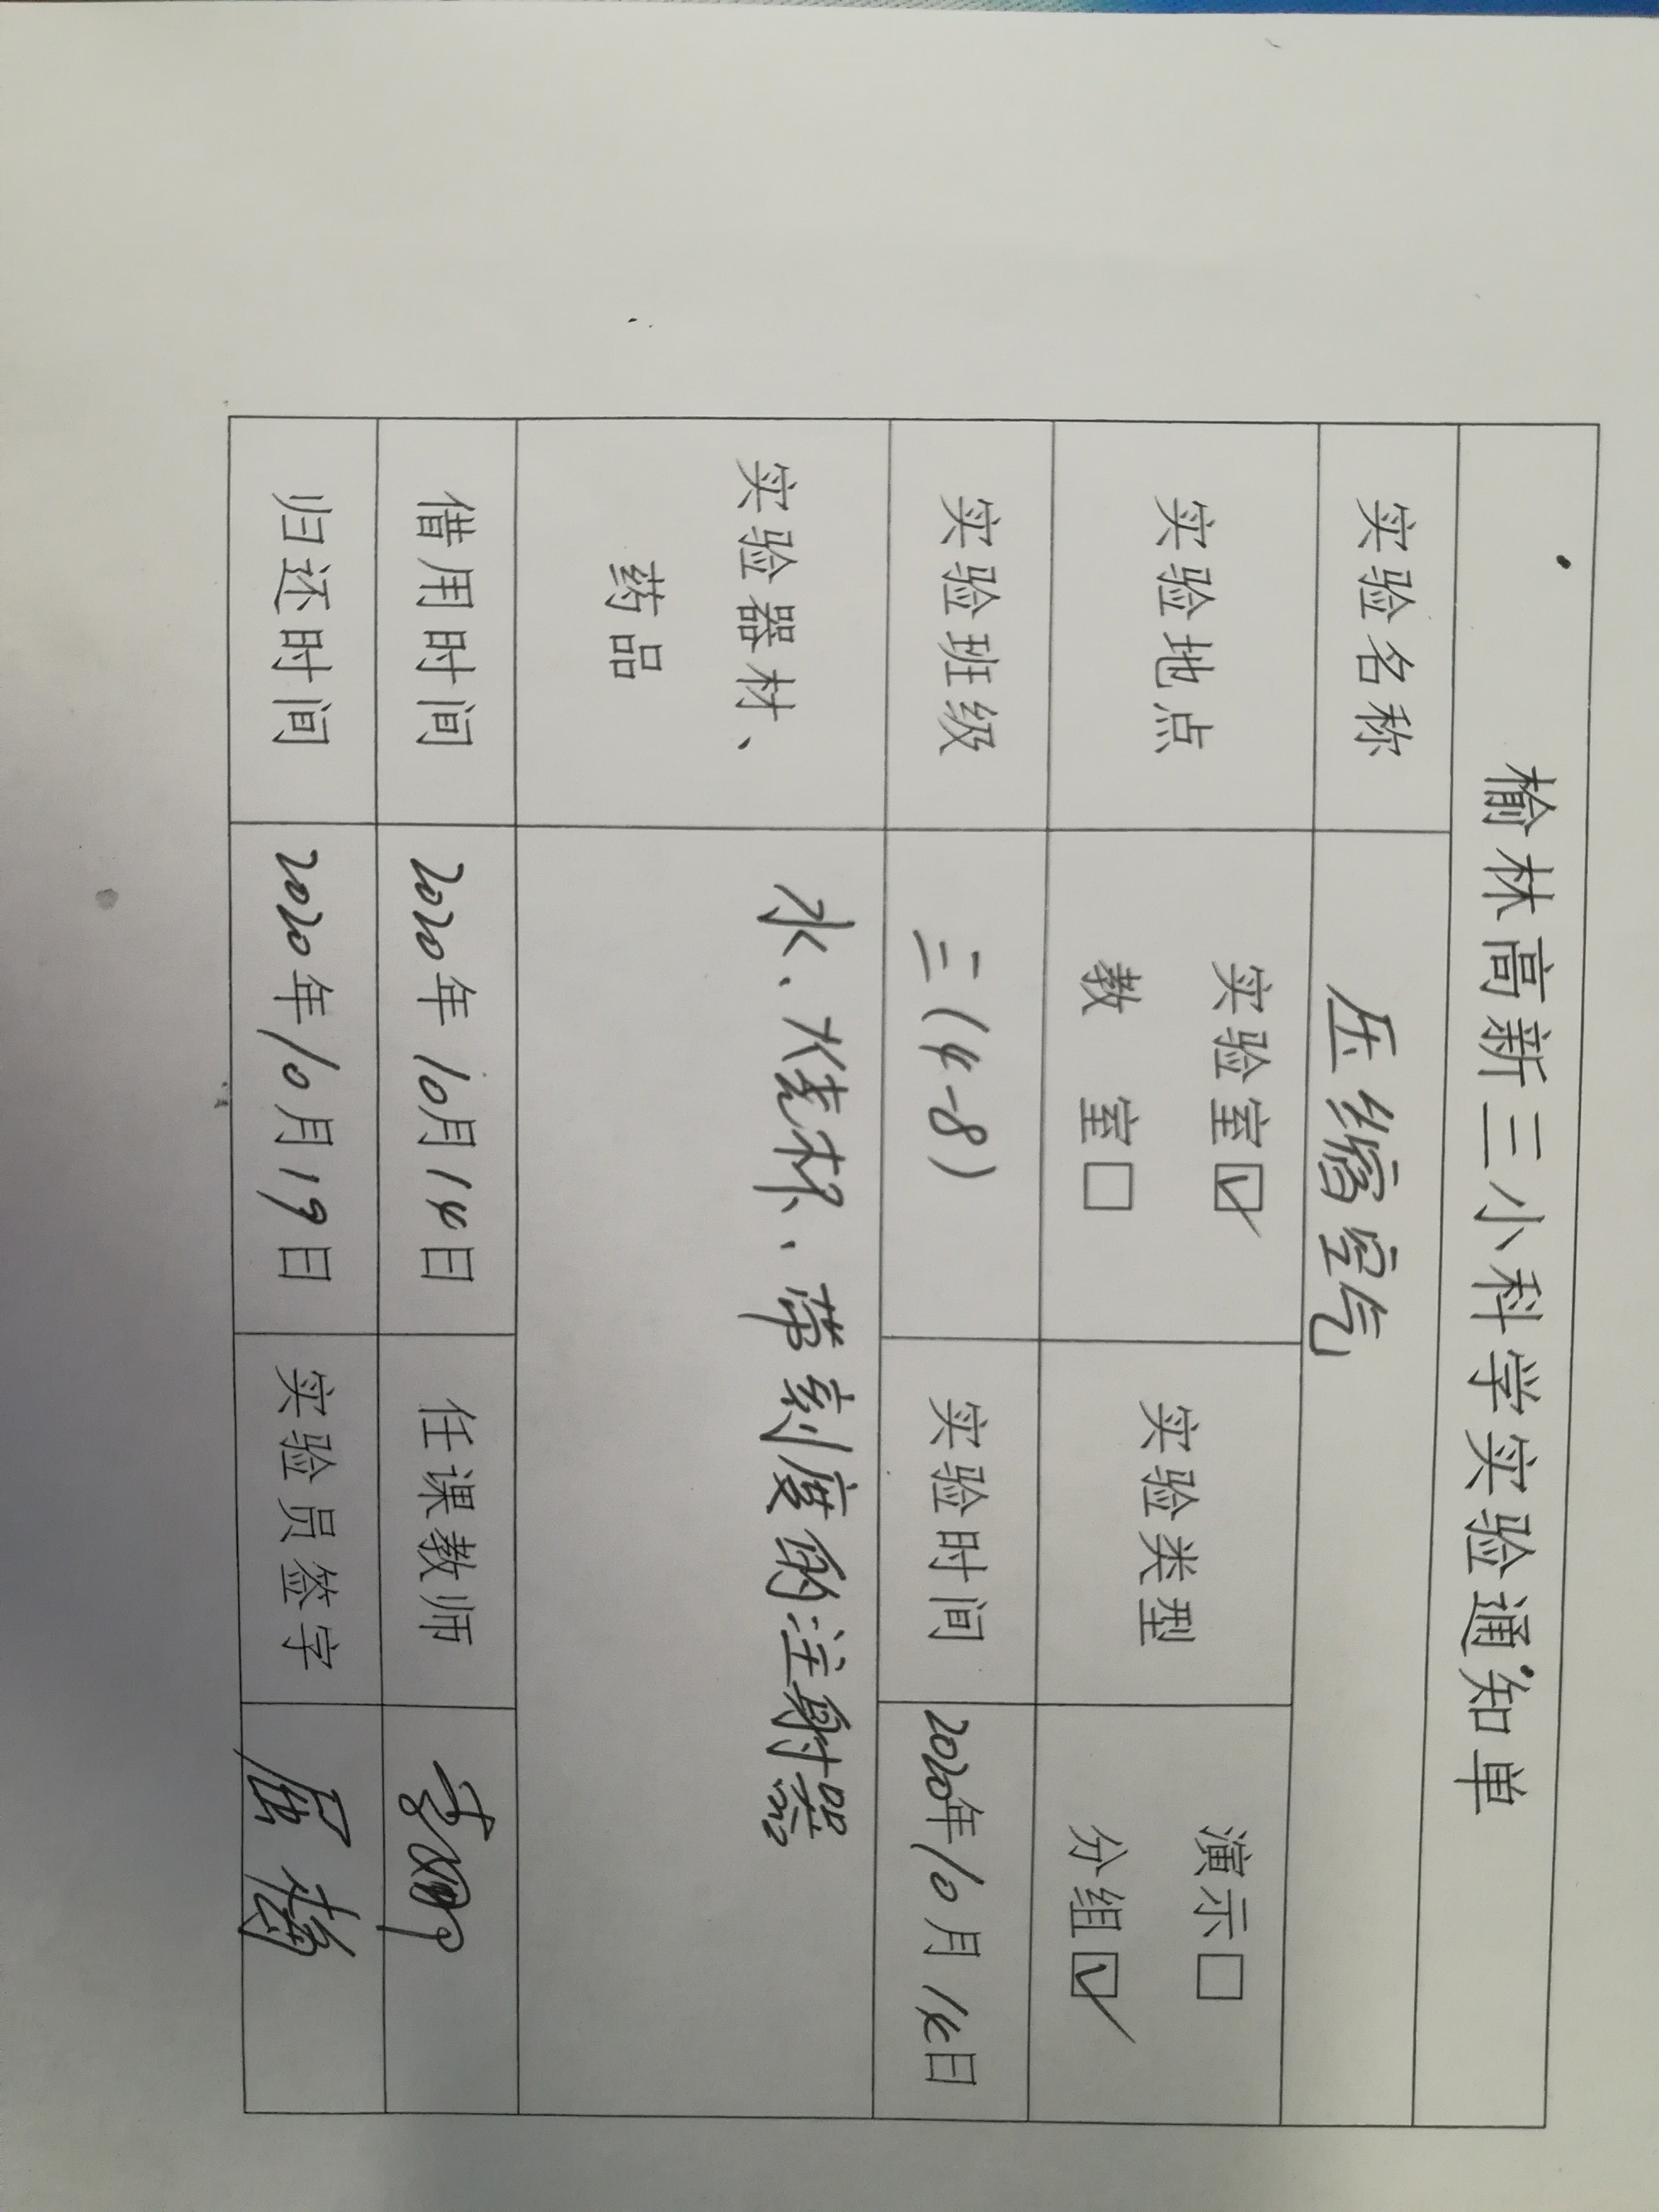 榆林高新三小科学实验通知单
实验名称 压缩空气
实验地点 实验室☑ 实验类型 演示□
教 室□ 分组☑
实验班级 三(4-8) 实验时间 2020年10月14日
实验器材、 水、烧杯、带刻度的注射器
药品
借用时间 2020年10月14日 任课教师
归还时间 2020年10月19日 实验员签字 屈